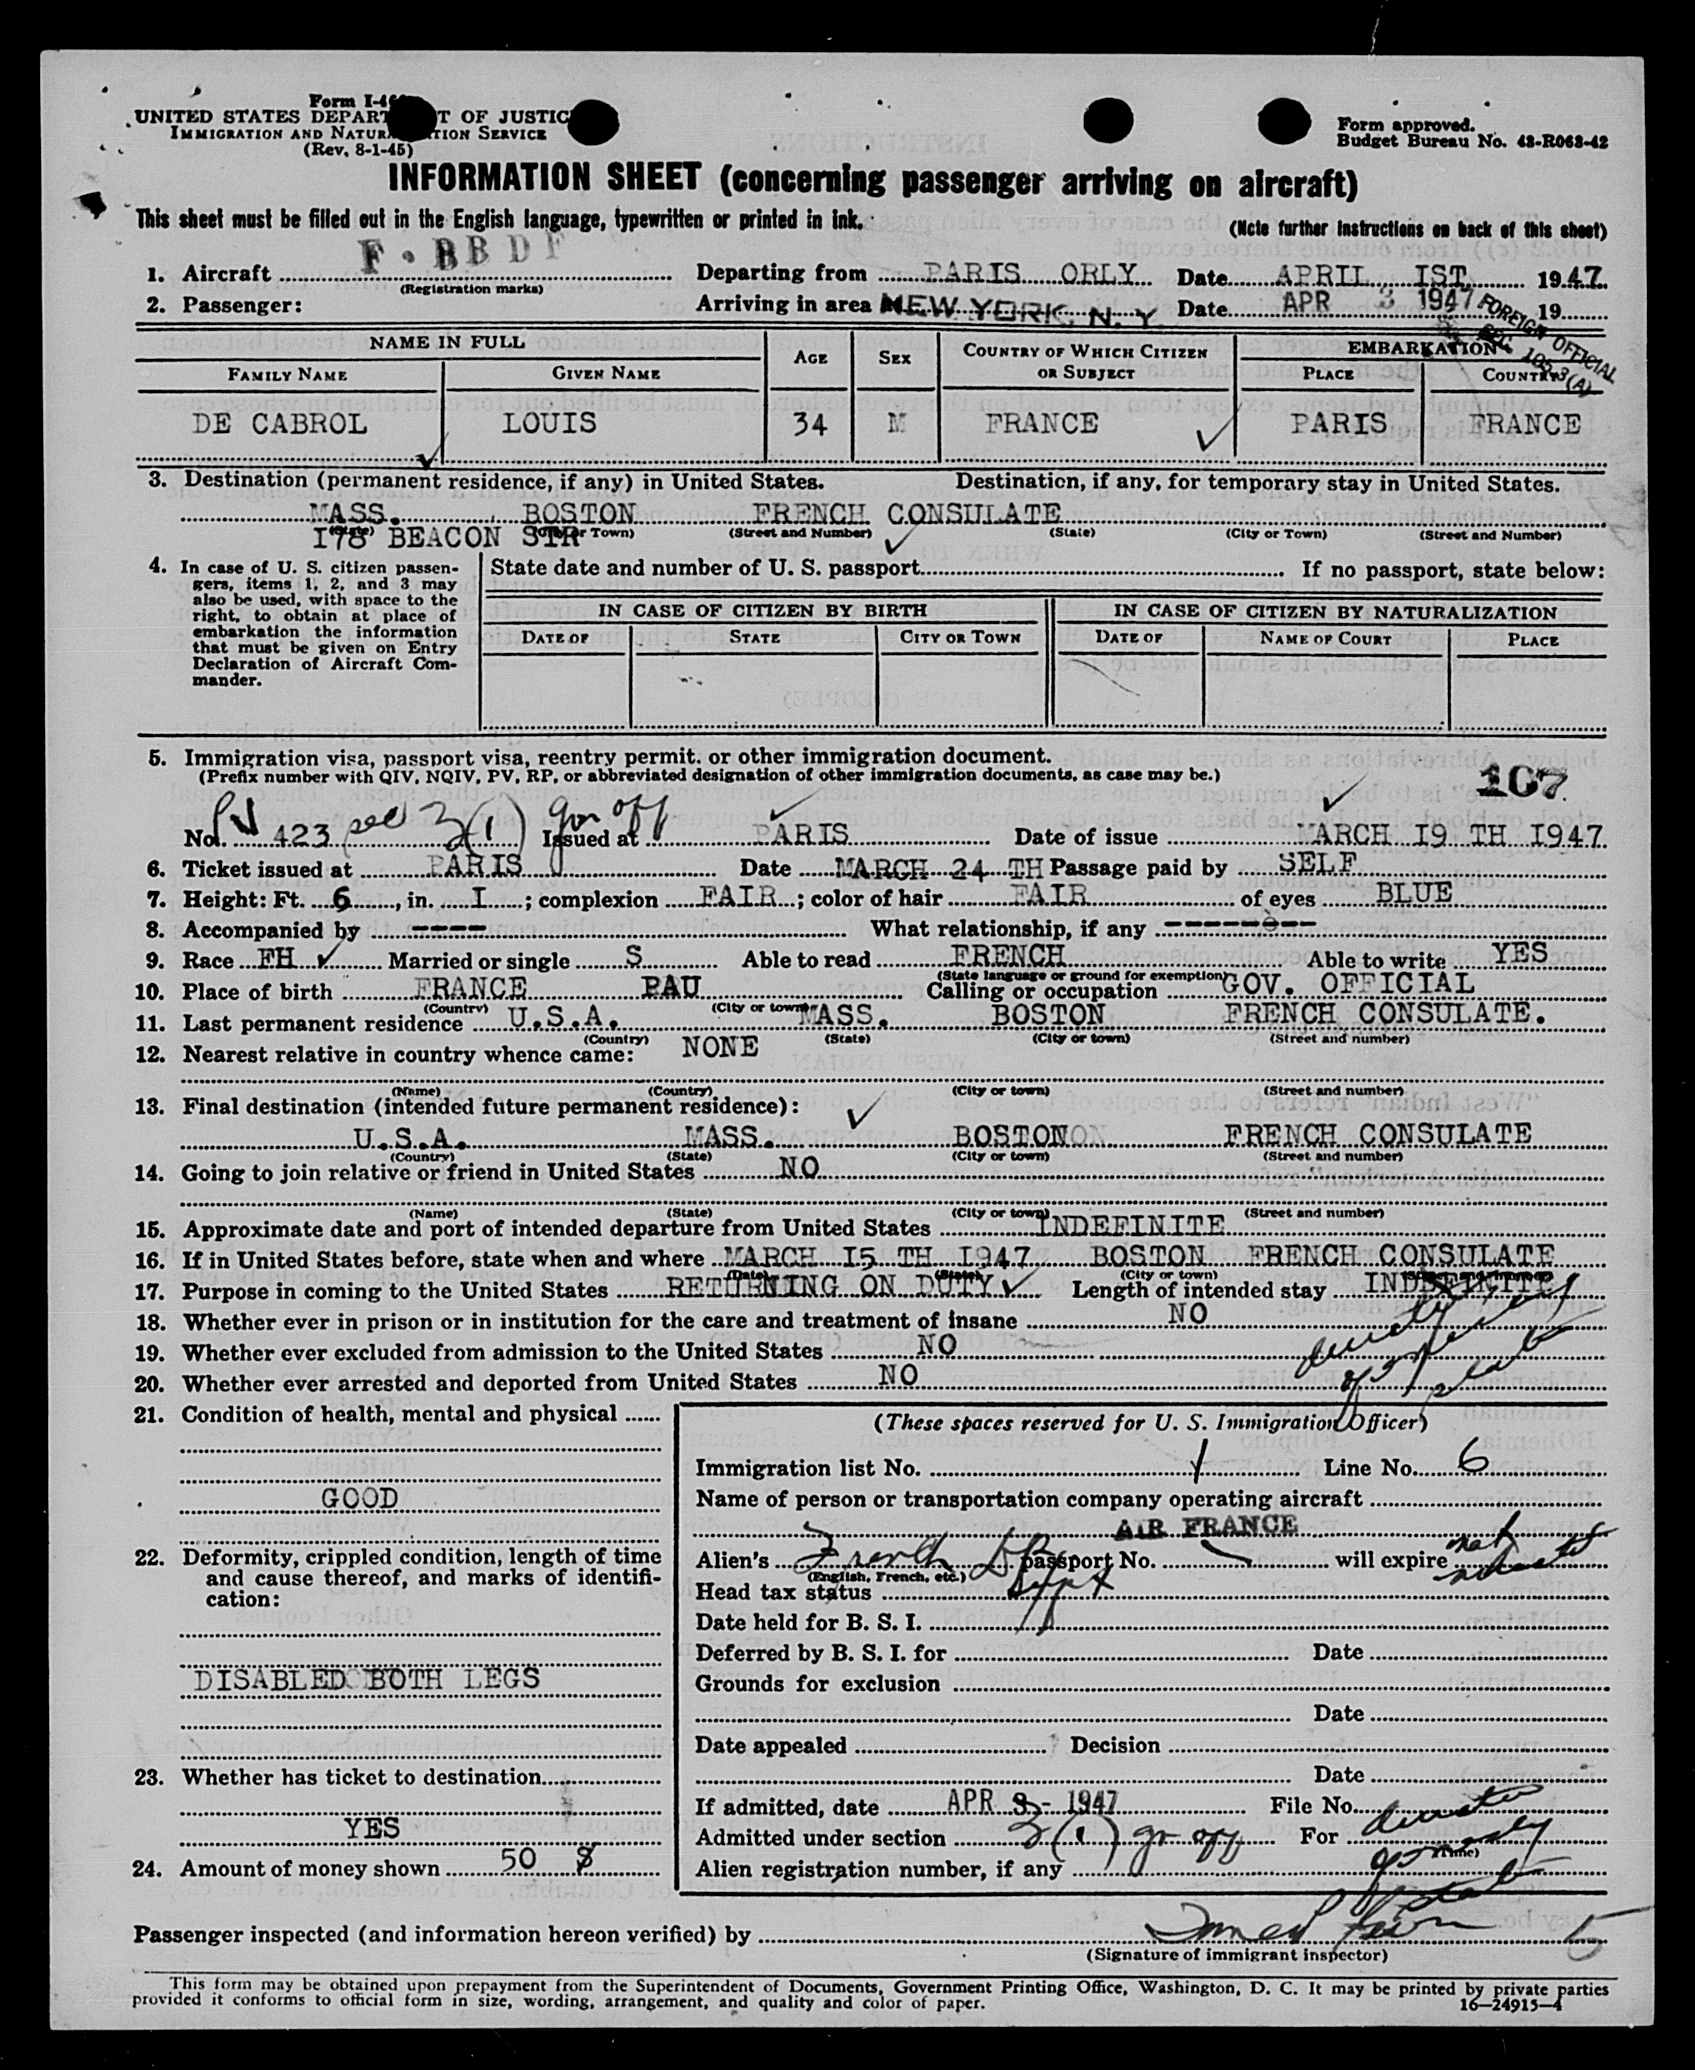 Form I-4
UNITED STATES DEPART T OF JUSTIC
IMMIGRATION AND NATUR TION SERVICE
(Rev. 8-1-45)
Form approved.
Budget Bureau No. 43-R068-42
INFORMATION SHEET (concerning passenger arriving on aircraft)
This sheet must be filled out in the English language, typewritten or printed in ink.
(Note further instructions on back of this sheet)
1. Aircraft F. BBDF Departing from PARIS ORLY Date APRIL IST 1947
(Registration marks)
2. Passenger: Arriving in area NEW YORK, N. Y. Date APR 3 1947 19
FOREIGN OFFICIAL
SEC. 105.3(A)
NAME IN FULL AGE SEX COUNTRY OF WHICH CITIZEN OR SUBJECT EMBARKATION
FAMILY NAME GIVEN NAME PLACE COUNTRY
DE CABROL LOUIS 34 M FRANCE PARIS FRANCE
3. Destination (permanent residence, if any) in United States. Destination, if any, for temporary stay in United States.
MASS. BOSTON FRENCH CONSULATE
(State) (City or Town) (Street and Number) (State) (City or Town) (Street and Number)
I78 BEACON STR
4. In case of U. S. citizen passengers, items 1, 2, and 3 may also be used, with space to the right, to obtain at place of embarkation the information that must be given on Entry Declaration of Aircraft Commander.
State date and number of U. S. passport If no passport, state below:
IN CASE OF CITIZEN BY BIRTH IN CASE OF CITIZEN BY NATURALIZATION
DATE OF STATE CITY OR TOWN DATE OF NAME OF COURT PLACE
5. Immigration visa, passport visa, reentry permit, or other immigration document.
(Prefix number with QIV, NQIV, PV, RP, or abbreviated designation of other immigration documents, as case may be.)
107
No. PV 423 sec 3(1) gov off Issued at PARIS Date of issue MARCH I9 TH I947
6. Ticket issued at PARIS Date MARCH 24 TH Passage paid by SELF
7. Height: Ft. 6, in. I; complexion FAIR; color of hair FAIR of eyes BLUE
8. Accompanied by ---- What relationship, if any --------
9. Race FH Married or single S Able to read FRENCH Able to write YES
(State language or ground for exemption)
10. Place of birth FRANCE PAU Calling or occupation GOV. OFFICIAL
(Country) (City or town)
11. Last permanent residence U.S.A. MASS. BOSTON FRENCH CONSULATE.
(Country) (State) (City or town) (Street and number)
12. Nearest relative in country whence came: NONE
(Name) (Country) (City or town) (Street and number)
13. Final destination (intended future permanent residence):
U.S.A. MASS. BOSTONON FRENCH CONSULATE
(Country) (State) (City or town) (Street and number)
14. Going to join relative or friend in United States NO
(Name) (State) (City or town) (Street and number)
15. Approximate date and port of intended departure from United States INDEFINITE
16. If in United States before, state when and where MARCH I5 TH I947 BOSTON FRENCH CONSULATE
(Date) (State) (City or town) (Street and number)
17. Purpose in coming to the United States RETURNING ON DUTY Length of intended stay INDEFINITE
18. Whether ever in prison or in institution for the care and treatment of insane NO
19. Whether ever excluded from admission to the United States NO
20. Whether ever arrested and deported from United States NO
21. Condition of health, mental and physical
GOOD
22. Deformity, crippled condition, length of time and cause thereof, and marks of identification:
DISABLED BOTH LEGS
23. Whether has ticket to destination
YES
24. Amount of money shown 50 $
(These spaces reserved for U. S. Immigration Officer)
Immigration list No. 1 Line No. 6
Name of person or transportation company operating aircraft
AIR FRANCE
Alien's French passport No. will expire
(English, French, etc.)
Head tax status
Date held for B. S. I.
Deferred by B. S. I. for Date
Grounds for exclusion
Date
Date appealed Decision
Date
If admitted, date APR 3 - 1947 File No.
Admitted under section 3(1) gv off For
(Time)
Alien registration number, if any
Passenger inspected (and information hereon verified) by
(Signature of immigrant inspector)
5
This form may be obtained upon prepayment from the Superintendent of Documents, Government Printing Office, Washington, D. C. It may be printed by private parties
provided it conforms to official form in size, wording, arrangement, and quality and color of paper.
16—24915-4